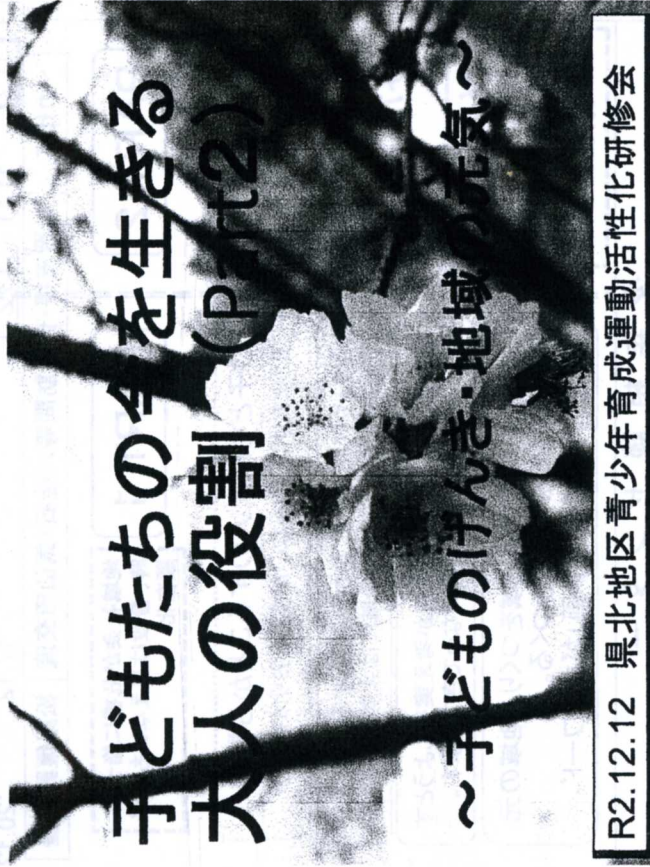 子どもたちの今を生きる
大人の役割 (Part2)
～子どものげんき・地域の元気～
R2.12.12 県北地区青少年育成運動活性化研修会